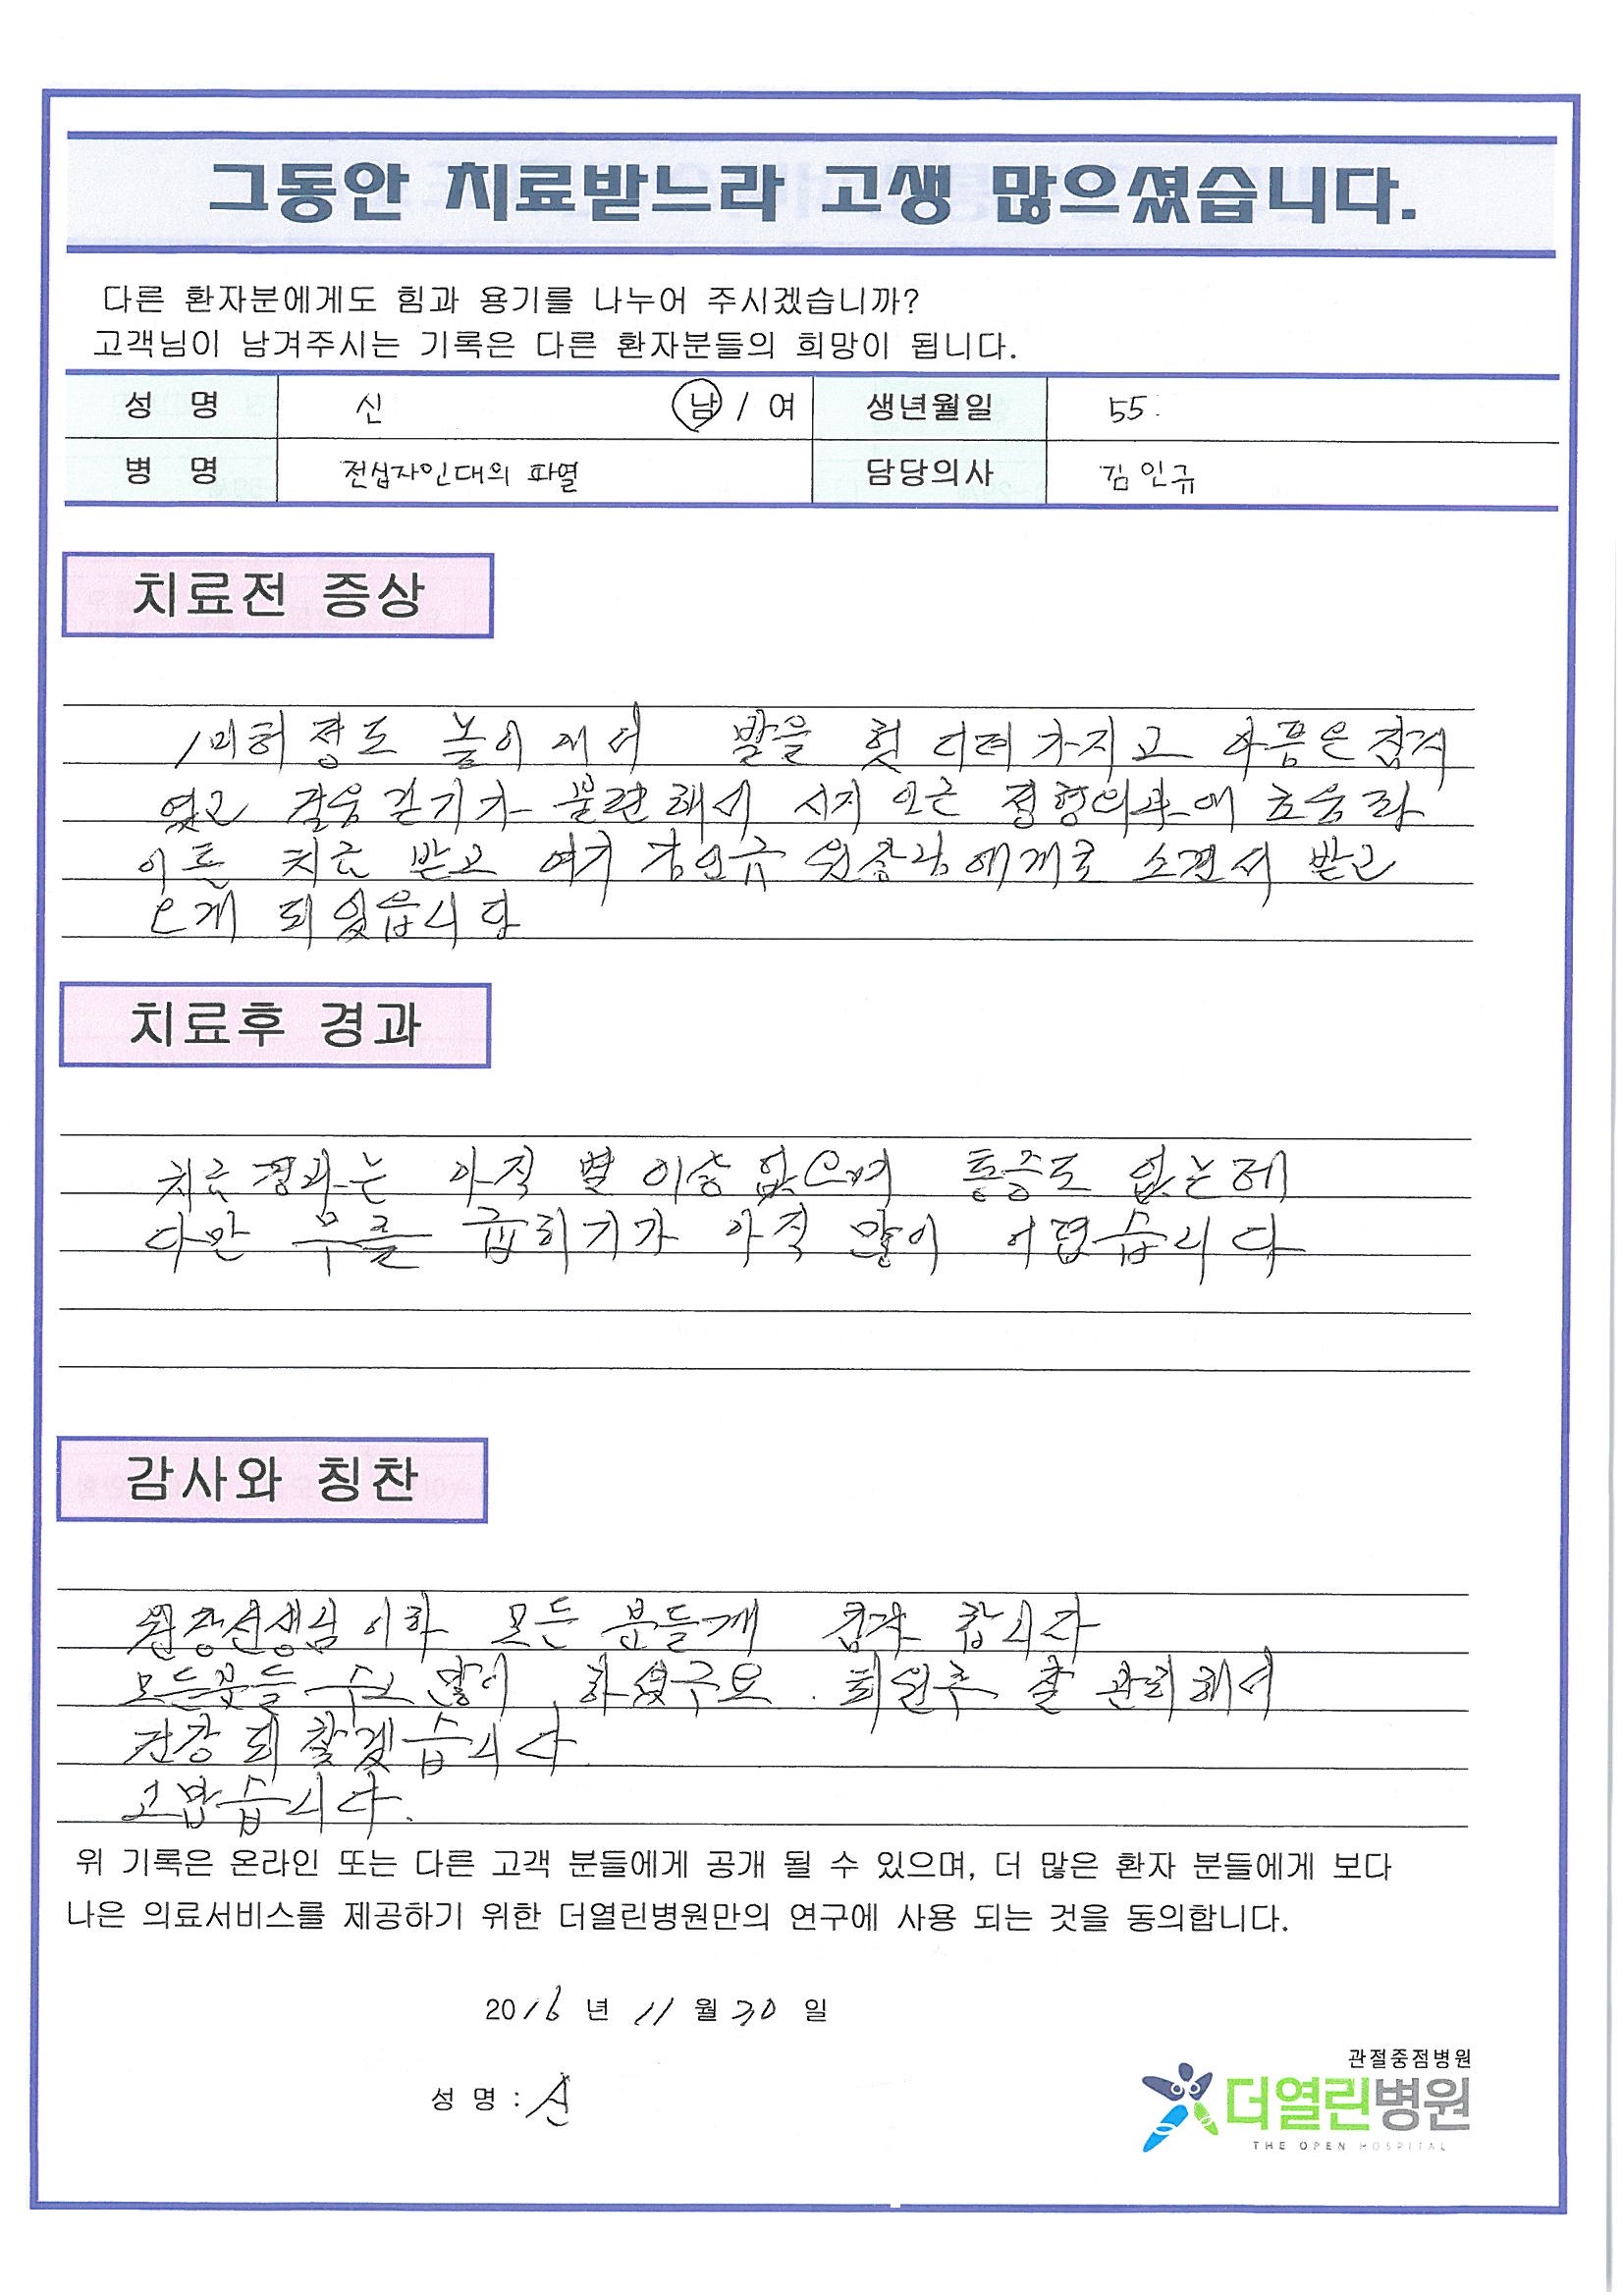 그동안 치료받느라 고생 많으셨습니다.
다른 환자분에게도 힘과 용기를 나누어 주시겠습니까?
고객님이 남겨주시는 기록은 다른 환자분들의 희망이 됩니다.
성 명 신 남 / 여 생년월일 55.
병 명 전십자인대의 파열 담당의사 김인규
치료전 증상
1미허 정도 높이 발을 헛 디뎌 가지고 아픔은 잠깐
였고 걸음 걷기가 불편해서 인근 정형외과에 초음파
치료 받고 여기 김인규 원장님에게로 소견서 받고
오게 되있읍니다
치료후 경과
치료경과는 아직 별 이상 없으며 통증도 없는데
다만 무릎 급히기가 아직 많이 어렵습니다
감사와 칭찬
원장선생님 이하 모든 분들께 감사 합니다
모든분들 수고 많이 하셨구요. 퇴원후 잘 관리해서
건강 되찾겠습니다
고맙습니다.
위 기록은 온라인 또는 다른 고객 분들에게 공개 될 수 있으며, 더 많은 환자 분들에게 보다
나은 의료서비스를 제공하기 위한 더열린병원만의 연구에 사용 되는 것을 동의합니다.
2016 년 11 월 30 일
성 명 : 신
관절중점병원
더열린병원
THE OPEN HOSPITAL